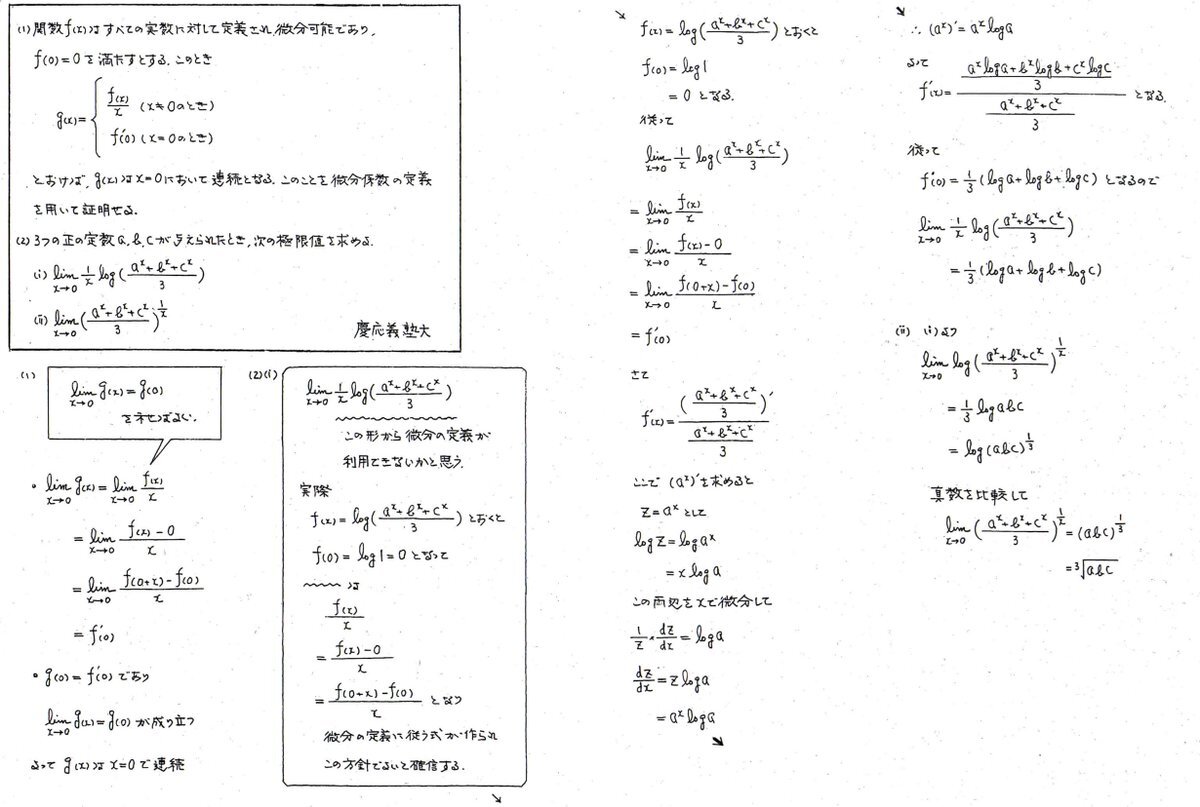 (1) 関数f(x)はすべての実数に対して定義され、微分可能であり、
f(0)=0を満たすとする。このとき
g(x)={ f(x)/x (x≠0のとき)
f'(0) (x=0のとき)
とおけば、g(x)はx=0において連続となる。このことを微分係数の定義
を用いて証明せよ。
(2) 3つの正の定数a, b, cが与えられたとき, 次の極限値を求めよ。
(i) lim x→0 1/x log((a^x+b^x+c^x)/3)
(ii) lim x→0 ((a^x+b^x+c^x)/3)^(1/x)
慶応義塾大
(1)
lim x→0 g(x)=g(0)
を示せばよい。
• lim x→0 g(x)=lim x→0 f(x)/x
=lim x→0 (f(x)-0)/x
=lim x→0 (f(0+x)-f(0))/x
=f'(0)
• g(0)=f'(0)であり
lim x→0 g(x)=g(0)が成り立つ
よってg(x)はx=0で連続
(2)(i)
lim x→0 1/x log((a^x+b^x+c^x)/3)
この形から微分の定義が
利用できないかと思う。
実際
f(x)=log((a^x+b^x+c^x)/3)とおくと
f(0)=log1=0となって
〰〰は
f(x)/x
=(f(x)-0)/x
=(f(0+x)-f(0))/x となり
微分の定義に従う式が作られ
この方針でよいと確信する。
↘
↘
f(x)=log((a^x+b^x+c^x)/3)とおくと
f(0)=log1
=0となる。
従って
lim x→0 1/x log((a^x+b^x+c^x)/3)
=lim x→0 f(x)/x
=lim x→0 (f(x)-0)/x
=lim x→0 (f(0+x)-f(0))/x
=f'(0)
さて
f'(x)=((a^x+b^x+c^x)/3)'/((a^x+b^x+c^x)/3)
ここで(a^x)'を求めると
z=a^xとして
log z=log a^x
=x log a
この両辺をxで微分して
1/z・dz/dx=log a
dz/dx=z log a
=a^x log a
↘
↘
∴ (a^x)'=a^x log a
よって
f'(x)=((a^x log a+b^x log b+c^x log c)/3)/((a^x+b^x+c^x)/3) となる
従って
f'(0)=1/3(log a+log b+log c)となるので
lim x→0 1/x log((a^x+b^x+c^x)/3)
=1/3(log a+log b+log c)
(ii) (i)より
lim x→0 log((a^x+b^x+c^x)/3)^(1/x)
=1/3 log abc
=log(abc)^(1/3)
真数を比較して
lim x→0 ((a^x+b^x+c^x)/3)^(1/x)=(abc)^(1/3)
=³√abc